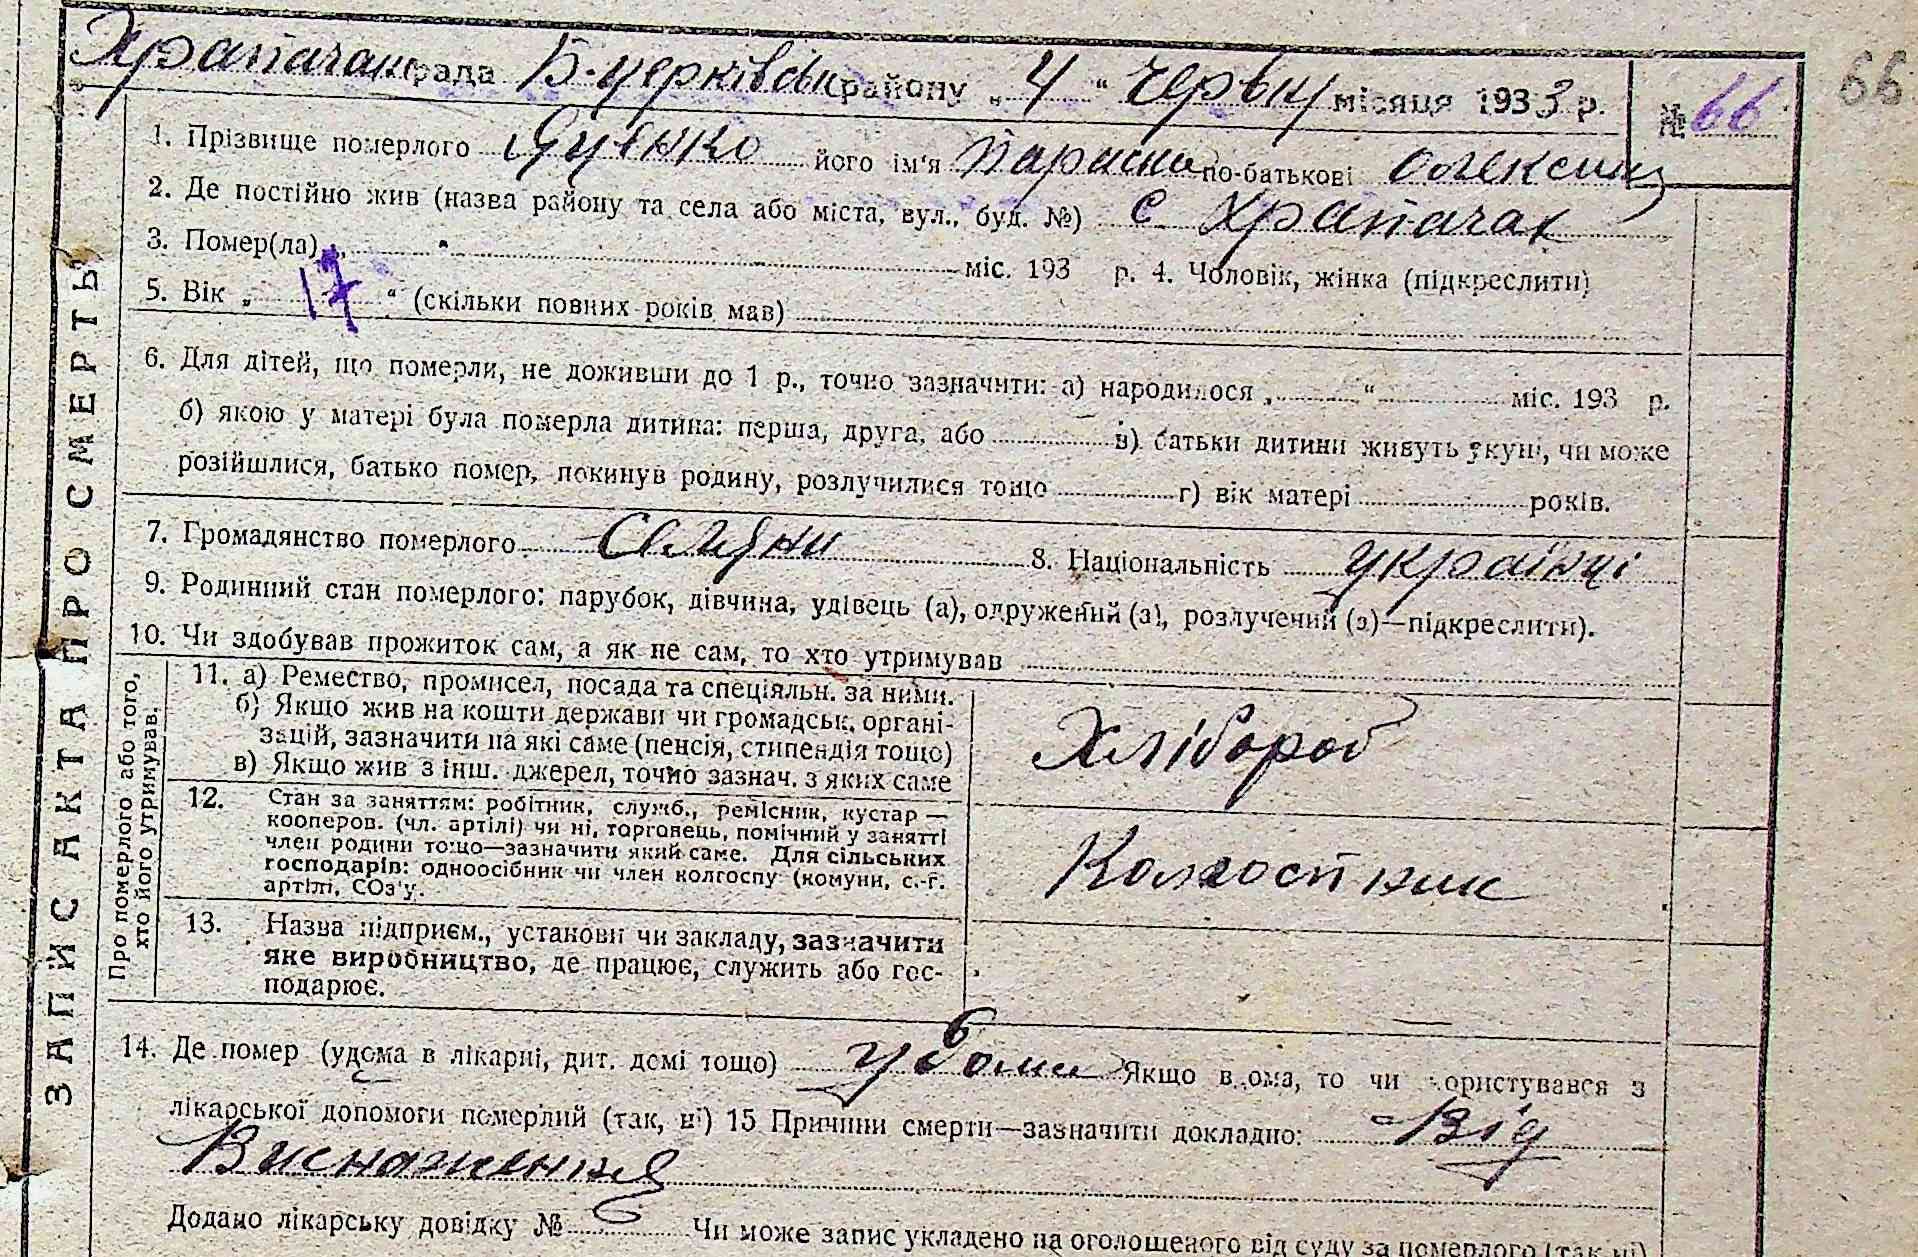 Храпачан рада Б-церківськ району „ 4 “ Червня місяця 1933 р. № 66 66
1. Прізвище померлого Яценко його ім'я Параска по-батькові Олексіїв
2. Де постійно жив (назва району та села або міста, вул., буд. №) с Храпачах
3. Помер(ла) „ “ міс. 193 р. 4. Чоловік, жінка (підкреслити)
5. Вік „ 17 “ (скільки повних років мав)
6. Для дітей, що померли, не доживши до 1 р., точно зазначити: а) народилося „ “ міс. 193 р.
б) якою у матері була померла дитина: перша, друга, або в) батьки дитини живуть укупі, чи може
розійшлися, батько помер, покинув родину, розлучилися тощо г) вік матері років.
7. Громадянство померлого Селяни 8. Національність українці
9. Родинний стан померлого: парубок, дівчина, удівець (а), одружений (а), розлучений (а)—підкреслити).
10. Чи здобував прожиток сам, а як не сам, то хто утримував
11. а) Ремество, промисел, посада та спеціяльн. за ними.
б) Якщо жив на кошти держави чи громадськ. органі-
зацій, зазначити на які саме (пенсія, стипендія тощо)
в) Якщо жив з інш. джерел, точно зазнач. з яких саме
Хлібороб
12. Стан за заняттям: робітник, служб., ремісник, кустар —
кооперов. (чл. артілі) чи ні, торговець, помічний у занятті
член родини тощо—зазначити який саме. Для сільських
господарів: одноосібник чи член колгоспу (комуни, с.-г.
артілі, СОз'у.
Колгоспник
13. Назва підприєм., установи чи закладу, зазначити
яке виробництво, де працює, служить або гос-
подарює.
14. Де помер (удома в лікарні, дит. домі тощо) у дома Якщо вдома, то чи користувався з
лікарської допомоги померлий (так, ні) 15 Причини смерти—зазначити докладно: Від
Виснаження
Додано лікарську довідку № Чи може запис укладено на оголошеного від суду за померлого (так ні)
ЗАПИС АКТА ПРО СМЕРТЬ
Про померлого або того,
хто його утримував.